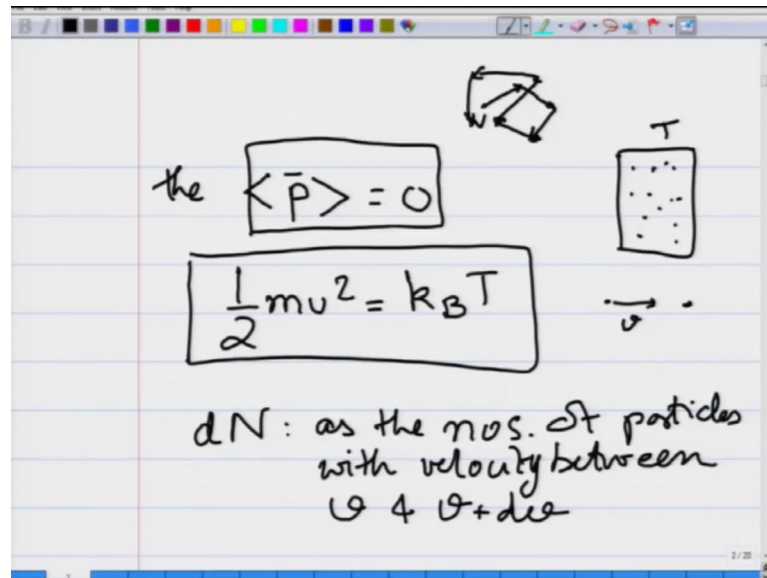 N
T
the <p̄> = 0
1/2 mv² = k_B T
v
dN: as the nos. of particles
with velocity between
v & v+dv
2 / 20